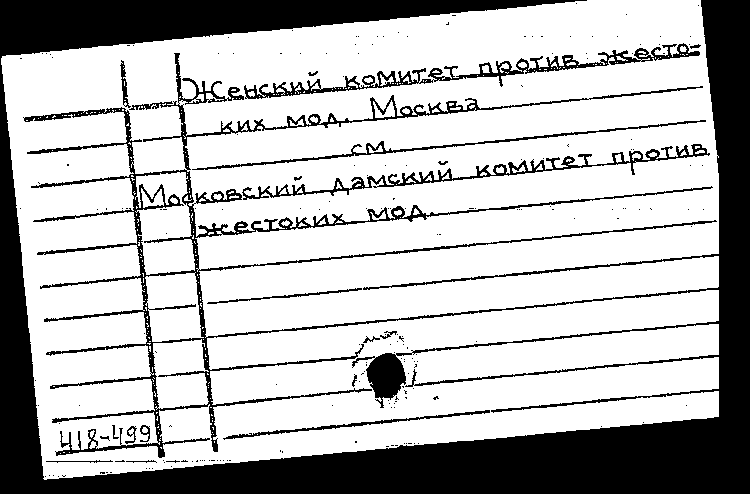 Женский комитет против жесто-
ких мод. Москва
см.
Московский дамский комитет против
жестоких мод.
418-499